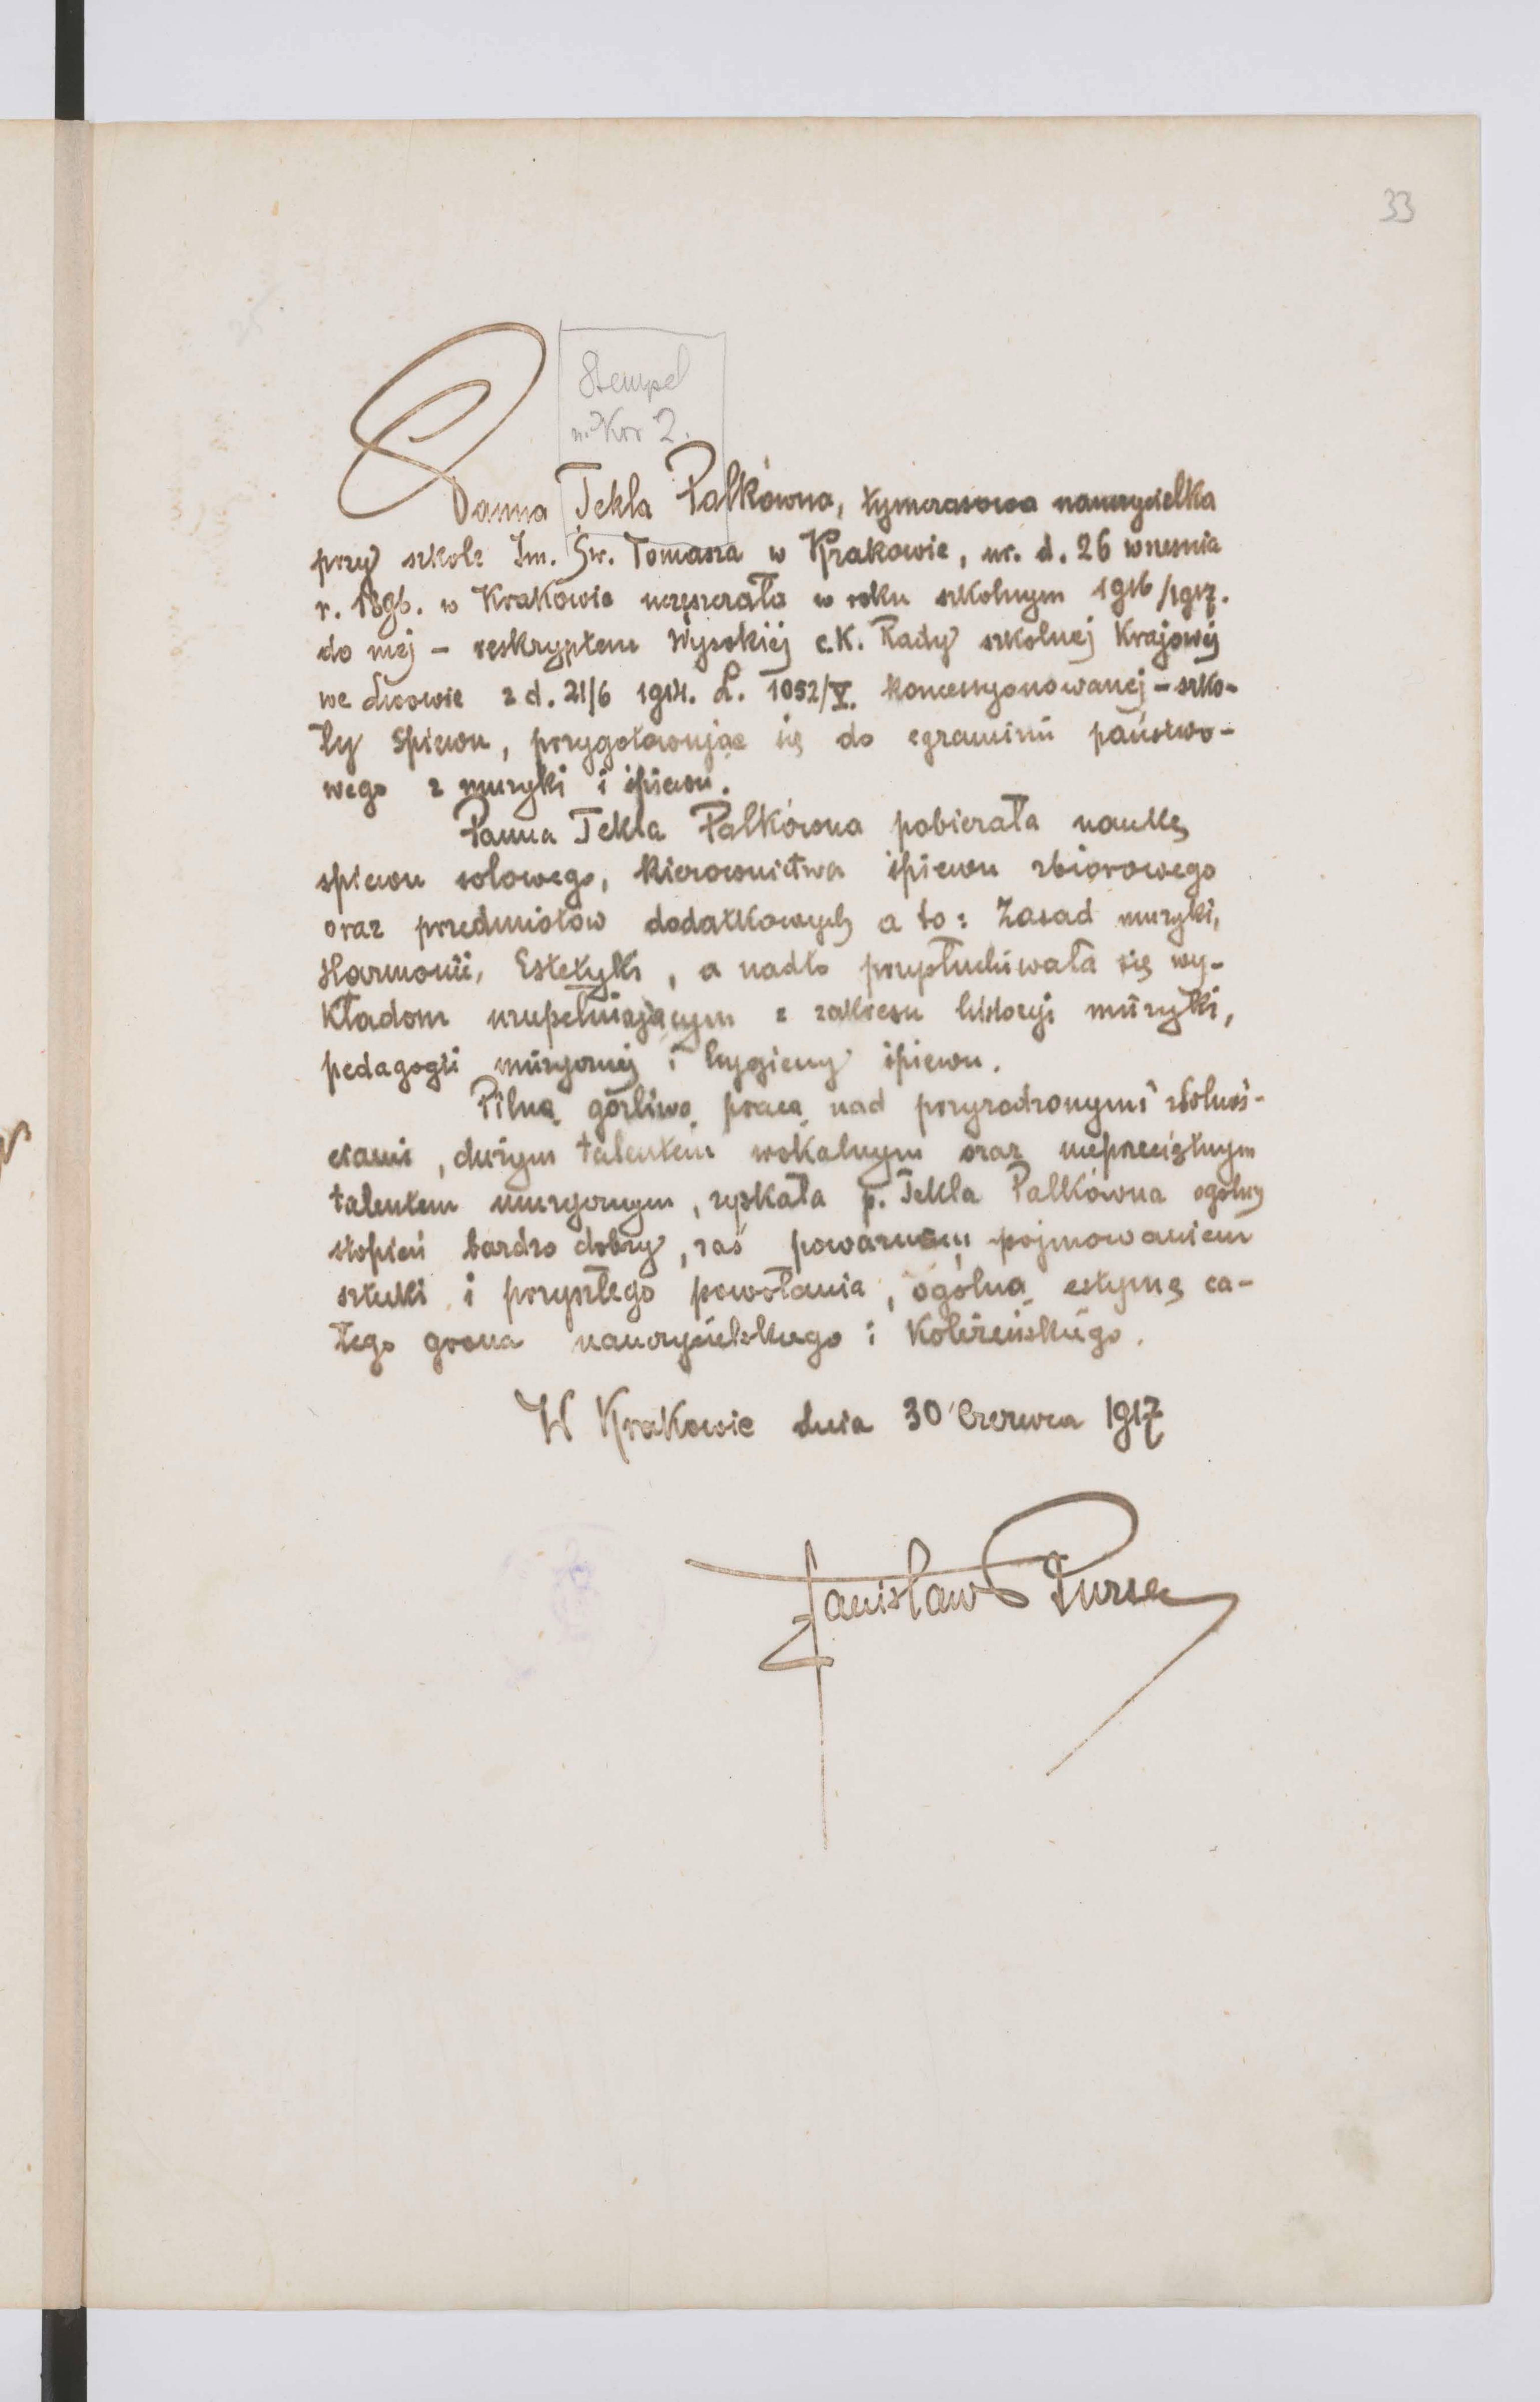 33
Stempel
n. Kor 2.
Panna Tekla Palkówna, tymczasowa nauczycielka
przy szkole Im. Św. Tomasza w Krakowie, ur. d. 26 wrzesnia
r. 1896. w Krakowie uczęszczała w roku szkolnym 1916/1917.
do mej – reskryptem Wysokiej c.K. Rady szkolnej Krajowej
we Lwowie z d. 21/6 1914. L. 1052/V. koncessyonowanej – szko-
ły Spiewu, przygotowując się do egzaminu państwo-
wego z muzyki i śpiewu.
Panna Tekla Palkówna pobierała naukę
spiewu solowego, kierownictwa śpiewu zbiorowego
oraz przedmiotów dodatkowych a to: Zasad muzyki,
Harmonii, Estetyki, a nadto przysłuchiwała się wy-
kładom uzupełniającym z zakresu historyi muzyki,
pedagogii muzycznej i hygieny śpiewu.
Pilną gorliwą pracą nad przyrodzonymi zdolnoś-
ciami, dużym talentem wokalnym oraz nieprzeciętnym
talentem muzycznym, zyskała p. Tekla Palkówna ogólny
stopień bardzo dobry, zaś poważnem pojmowaniem
sztuki i przyszłego powołania, ogólną estymę ca-
łego grona nauczycielskiego i Koleżeńskiego.
W Krakowie dnia 30 Czerwca 1917
Stanisław Bursa